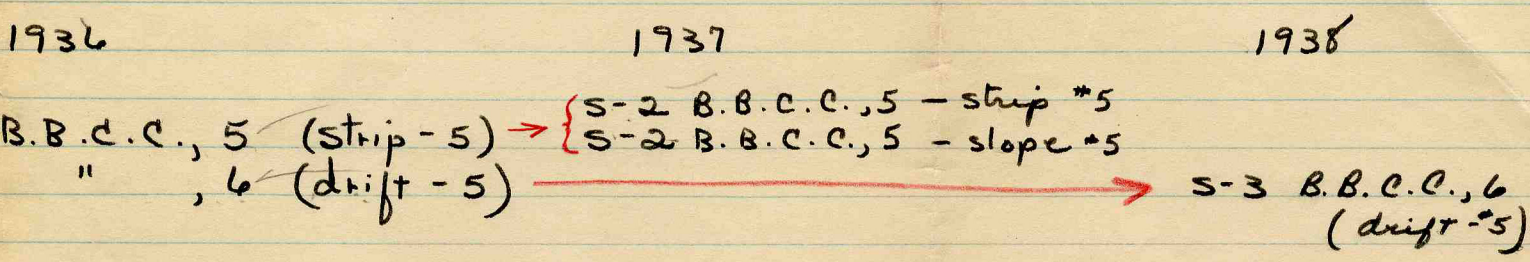 1936 1937 1938
S-2 B.B.C.C., 5 - strip #5
B.B.C.C., 5 (strip - 5) → { S-2 B.B.C.C., 5 - slope #5
" , 6 (drift - 5) → S-3 B.B.C.C., 6
(drift - #5)